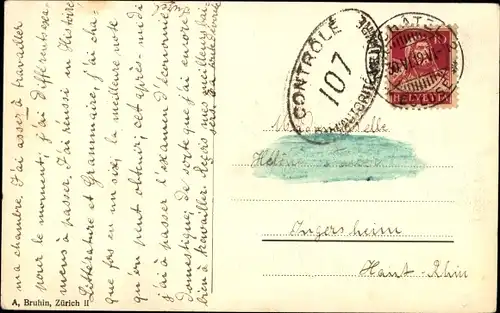 ma chambre. J'ai assez à travailler
pour le moment, j'ai différents exa-
mens à passer. J'ai réussi en Histoire
Littérature et Grammaire, j'ai cha-
que fois eu un six, la meilleure note
qu'on peut obtenir, cet après-midi
j'ai à passer l'examen d'économie
domestique, de sorte que j'ai encore
bien à travailler. Reçois mes meilleurs bai-
sers
CONTRÔLE
107
AUTORITÉ
10
HELVETIA
Mademoiselle
Hélène
Ingersheim
Haut-Rhin
A. Bruhin, Zürich II